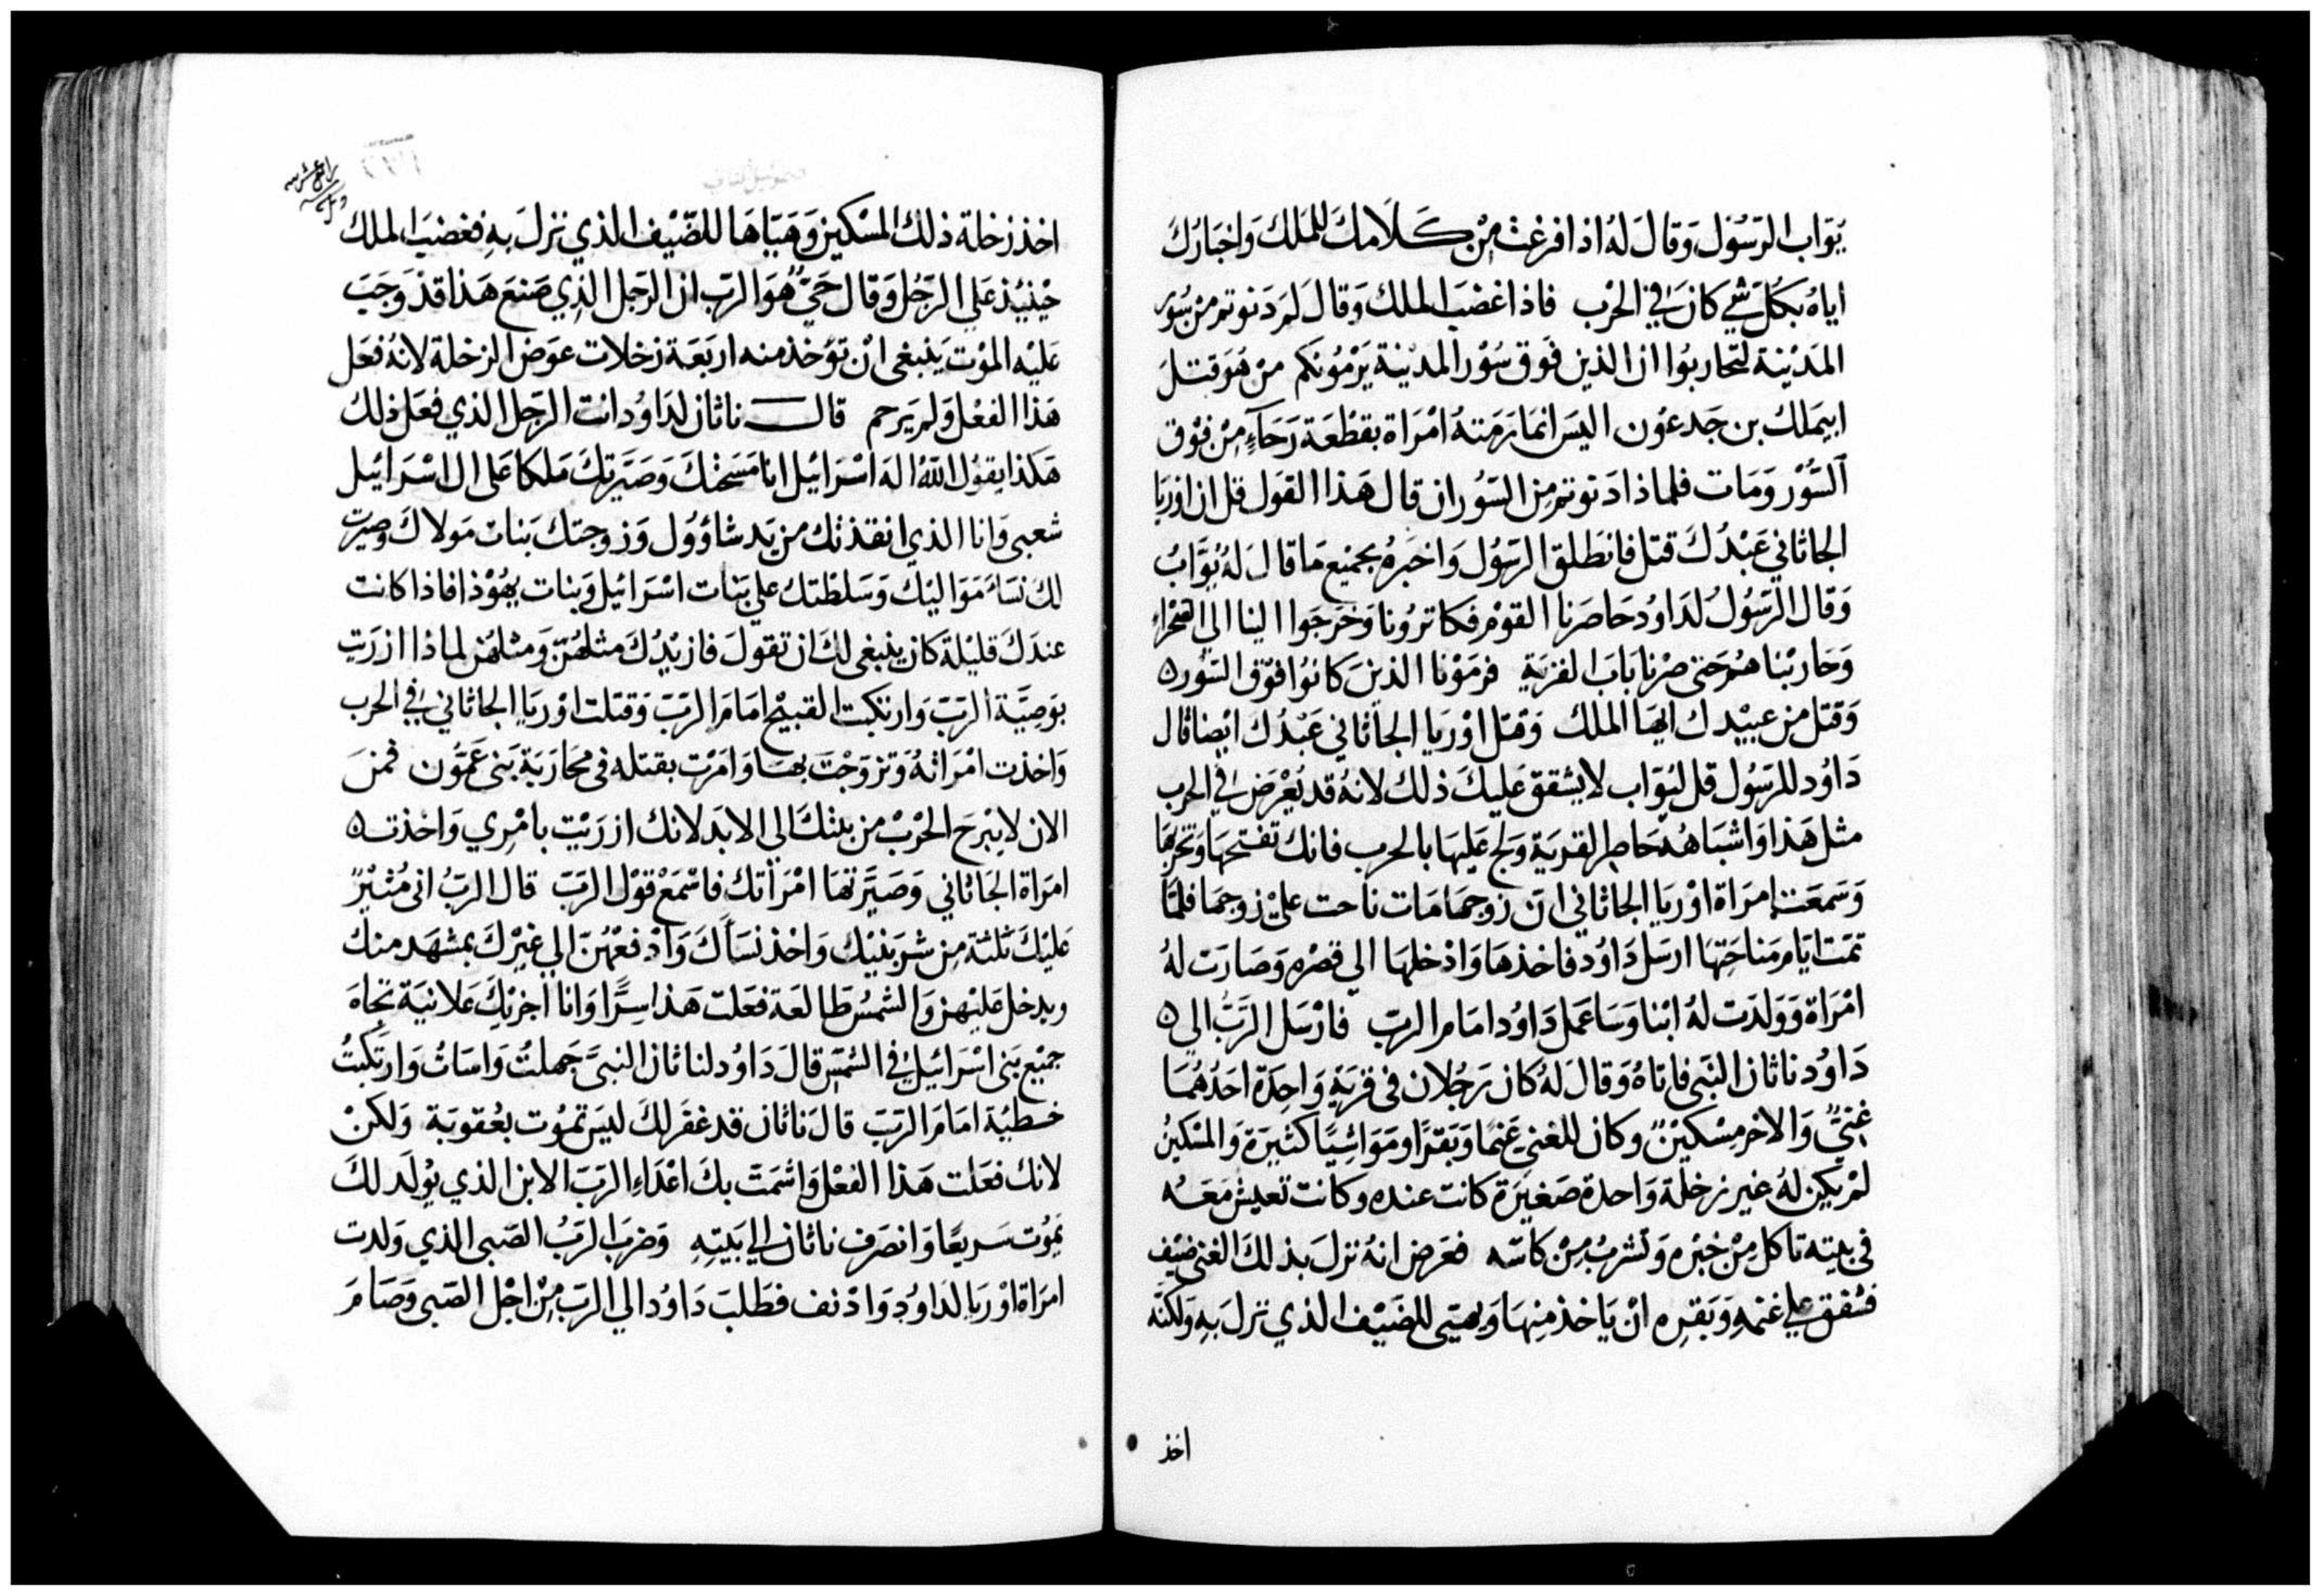 يُوَاب الرَسُوَل وَقال لَهُ اذا فرغت مِنْ كَلَامكَ للمَلكَ وَاخبَارَكَ
اياهُ بكُلّ شي كانَ في الحَرْب فاذا غضبَ الملك وَقالَ لِمَ دَنوتم من سُور
المَدَيْنة لتحاربُوا ان الذين فَوق سُوْر المدَينة يَرْمُونكم منْ هُوَ قتلَ
ابيمَلك بن جَدعُون اليسَ انما رَمَتهُ امْرَاة بقطْعَة رَحَآءٍ مِنْ فَوْق
السُّوْر وَمَات فلماذا دَنوتم مِن السُّور ان قال هَذا القول قل ان اوريَا
الجاثاني عَبْدُكَ قتل فانطلق الرَسُول وَاخبَرهُ بجَميْع مَا قالَ لهُ يُوَّابُ
وَقال الرسُولُ لدَاودَ حَاصَرنا القوْم فكاترُونا وَخرَجَوا الينا الى الصَحْراء
وَحَارَبْنا هُم حَتى صِرْنا بَابَ القريَة فرمَوْنا الذينَ كانُوا فوْق السّور
وَقتل من عَبيْدك ايها الملك وَقتل اوْريَا الجاثاني عَبْدُكَ ايْضا قال
دَاوُد للرَسُول قل ليُوَاب لا يشقق عَليكَ ذلك لانهُ قد يُعْرَض في الحرب
مثل هَذا وَاشبَاههُ حَاصِر القريَة وَلج عَليهَا بالحرب فانك تفتحهَا وَتخربهَا
وَسَمعَت امرَاة اوْريَا الجاثاني انّ زوجهَا مَات ناحت عليْ زوجهَا فلمَّا
تمّت ايَام مَناحَتِهَا ارسَل دَاوُد فاخذهَا وَادْخلهَا الي قصْره وَصَارَت لهُ
امْرَاة وَوَلدَت لهُ ابْنا وَسَا عَمل دَاوُد امَام الربّ فارْسَل الرَّبّ الي
دَاوُد ناثان النَبى فاتاهُ وَقال لهُ كان رَجُلان فى قريَةٍ وَاحِدَة احَدُهُمَا
غنيٌّ وَالاخر مِسْكيْنٌ وكان للغني غنمًا وَبَقرًا ومَوَاشِيًا كثيرَة وَالمسْكينُ
لمْ يكنْ لهُ غير رخلة وَاحدة صَغيَرَة كانت عنده وكانت تعيش مَعَهُ
فى بيته تاكل مِنْ خبْره وَتشربُ مِنْ كاسّه فعَرض انهُ نزلَ بذلكَ الغنى ضيْف
فشفق علي غنمهِ وَبَقرِه انْ يَاخذ مِنهَا وَيهيّى للضيْف الذي نزلَ بهِ وَلكنّه
اخذ
اخذ رَخلة ذلكَ المسْكين وَهَيّاهَا للضّيْف الذي نزلَ بهِ فغضبَ الملك
حيْنيْذ عَلى الرَّجُل وَقال حَيٌّ هُوَ الرَبّ ان الرَجل الذِي صَنعَ هَذا قدْ وَجَبَ
عَليْه الموْت يَنبغى انْ توْخذ منه ارَبَعَة رَخلات عوَض الرّخلة لانهُ فعَل
هَذا الفعْل وَلم يَرحم قال ناثان لدَاوُد انت الرّجل الذي فعَل ذلك
هَكذا يقوُل اللهُ الهَ اسْرَائيْل انا مَسَحْتكَ وَصَيَّرتكَ مَلكا عَلى ال اسْرَائيل
شعبى وَانا الذي انقذتك من يَد شاؤوُل وَزوجتكَ بَنات مَولاكَ وصيّرت
لكَ نسَاءَ مَوَاليْك وَسَلطتك علي بَنات اسْرَائيل وَبنات يهُوْذا فاذا كانت
عندَكَ قليْلة كان ينبغى لكَ ان تقولَ فازيدُكَ مثلهُنّ وَمثلهُن لماذا ازرَيت
بوَصِيَّة الرَبّ وَارتكبت القبيْح امَامَ الرَبّ وَقتلت اوْريَا الجاثاني في الحرب
وَاخذت امْرَاتهُ وَتزوّجْتَ بهَا وَامَرْت بقتله فى محَارَبَة بَنى عَمُّون فمنَ
الان لا يبْرحَ الحَرْبْ من بيْتكَ الي الابَد لانك ازرَيْت بامْرِي وَاخذت
امرَاة الجَاثاني وَصَيَّرتهَا امْرَأتك فاسْمَعْ قوْل الرَبّ قال الربُّ انى مُثيْرٌ
عَليْكَ ثلثة مِن شرّ بَنيْك وَاخذ نسَاكَ وَادْفعْهُنّ الي غيْرَكَ بمشهَد منك
ويدخل عَليْهنّ وَالشمسُ طالعَة فعَلت هَذا سِرًّا وَانا اجْزيْكِ عَلانيَة تجاهَ
جَميْع بَنى اسْرَائيْل فْي الشمْسَ قالَ دَاوُد لناثان النبىَّ جَهلتُ وَاسَاتُ وَارتكبْتُ
خطيْة امَامَ الرَبّ قالَ ناثان قد غفَر لكَ ليسَ تمُوت بعُقوبَة وَلكنْ
لانكَ فعَلت هَذا الفعْل وَاشمَتّ بكَ اعْدَاءِ الرَبّ الابن الذي يُولَد لكَ
يمُوت سَريعًا وَانصَرف ناثان الي بَيتِهِ وَضرَبَ الرَبّ الصّبى الذي وَلدت
امرَاة اوْريَا لدَاوُد وَادْنف فطلبَ دَاوُد الي الرَبّ مِنْ اجْل الصّبى وَصَامَ